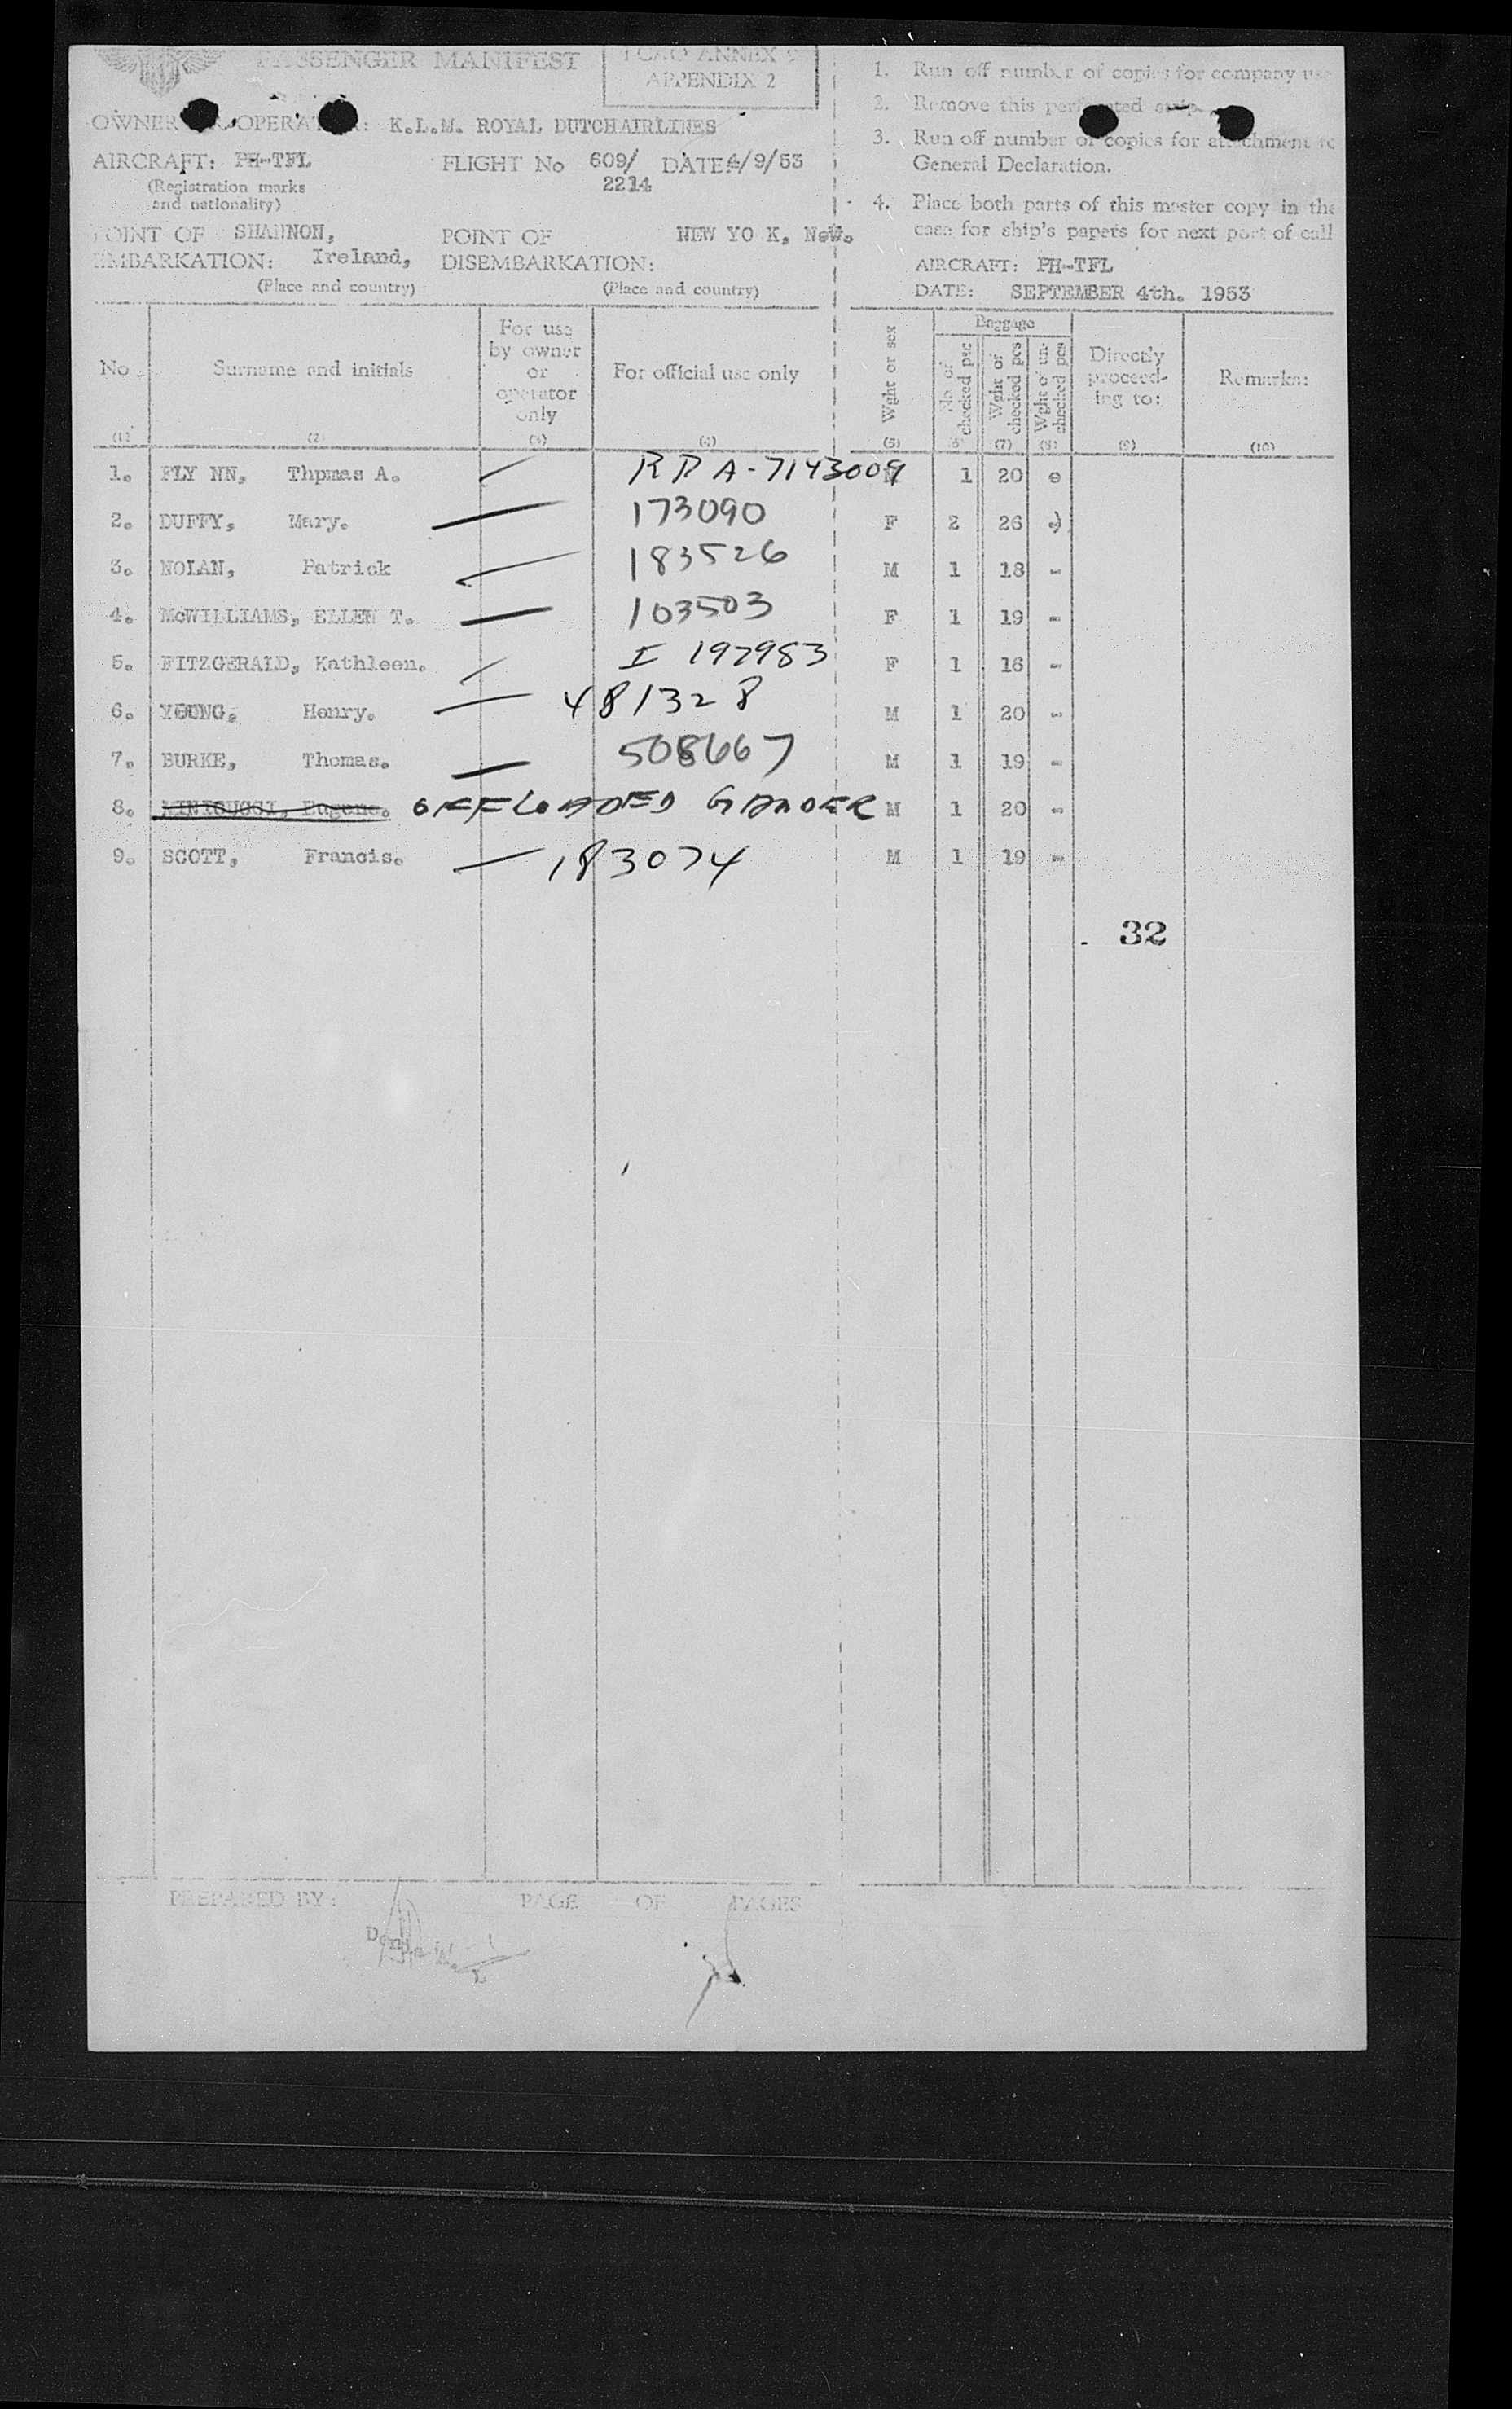 PASSENGER MANIFEST
ICAO ANNEX 9
APPENDIX 2
OWNER OR OPERATOR: K.L.M. ROYAL DUTCHAIRLINES
AIRCRAFT: PH-TFL FLIGHT No 609/ DATE: 4/9/53
2214
(Registration marks
and nationality)
POINT OF SHANNON, POINT OF NEW YO K, N.W.
EMBARKATION: Ireland, DISEMBARKATION:
(Place and country) (Place and country)
1. Run off number of copies for company use
2. Remove this perforated strip.
3. Run off number of copies for attachment to
General Declaration.
4. Place both parts of this master copy in the
case for ship's papers for next port of call
AIRCRAFT: PH-TFL
DATE: SEPTEMBER 4th. 1953
No Surname and initials For use by owner or operator only For official use only Wght or sex Baggage No of checked pcs Wght of checked pcs Wght of un-checked pcs Directly proceed-ing to: Remarks:
(1) (2) (3) (4) (5) (6) (7) (8) (9) (10)
1. FLY NN, Thpmas A. — RPA-7143009 1 20
2. DUFFY, Mary. — 173090 F 2 26
3. NOLAN, Patrick — 183526 M 1 18 -
4. McWILLIAMS, ELLEN T. — 103503 F 1 19 -
5. FITZGERALD, Kathleen. — I 197983 F 1 16 -
6. YOUNG. Henry. — 481328 M 1 20 -
7. BURKE, Thomas. — 508667 M 1 19 -
8. MINICUCCI, Eugene. OFFLOADED GANDER M 1 20 -
9. SCOTT, Francis. — 183074 M 1 19 -
32
PREPARED BY: PAGE OF PAGES